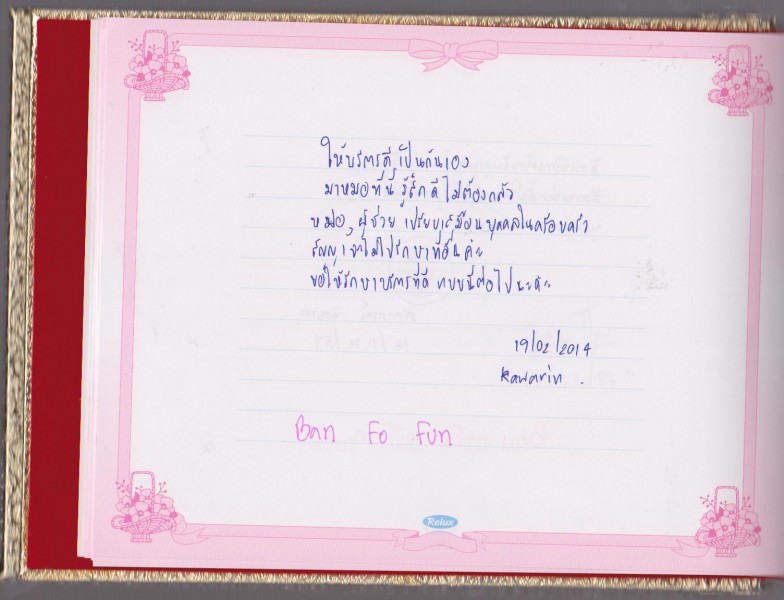 ให้บริการดี เป็นกันเอง
มาหมอที่นี่ รู้สึกดี ไม่ต้องกลัว
หมอ, ผู้ช่วย เปรียบเสมือนบุคคลในครอบครัว
สัญญาจะไม่ไปรักษาที่อื่นค่ะ
ขอให้รักษาบริการที่ดี แบบนี้ต่อไปนะคะ
19/02/2014
Kawarin.
Ban Fo Fun
Relux